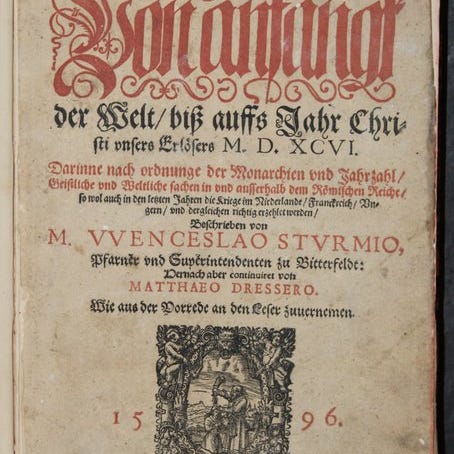 Von anfangk
der Welt/ biß auffs Jahr Chri-
sti vnsers Erlösers M. D. XCVI.
Darinne nach ordnunge der Monarchien vnd Jahrzahl/
Geistliche vnd Weltliche sachen in vnd ausserhalb dem Römischen Reiche/
so wol auch in den letzten Jahren die Kriege im Niederlande/ Franckreich/ Vn-
gern/ vnd dergleichen richtig erzehlet werden/
Beschrieben von
M. VVENCESLAO STVRMIO,
Pfarner vnd Superintendenten zu Bitterfeldt:
Dernach aber continuiret von
MATTHAEO DRESSERO.
Wie aus der Vorrede an den Leser zuuernemen.
15 96.